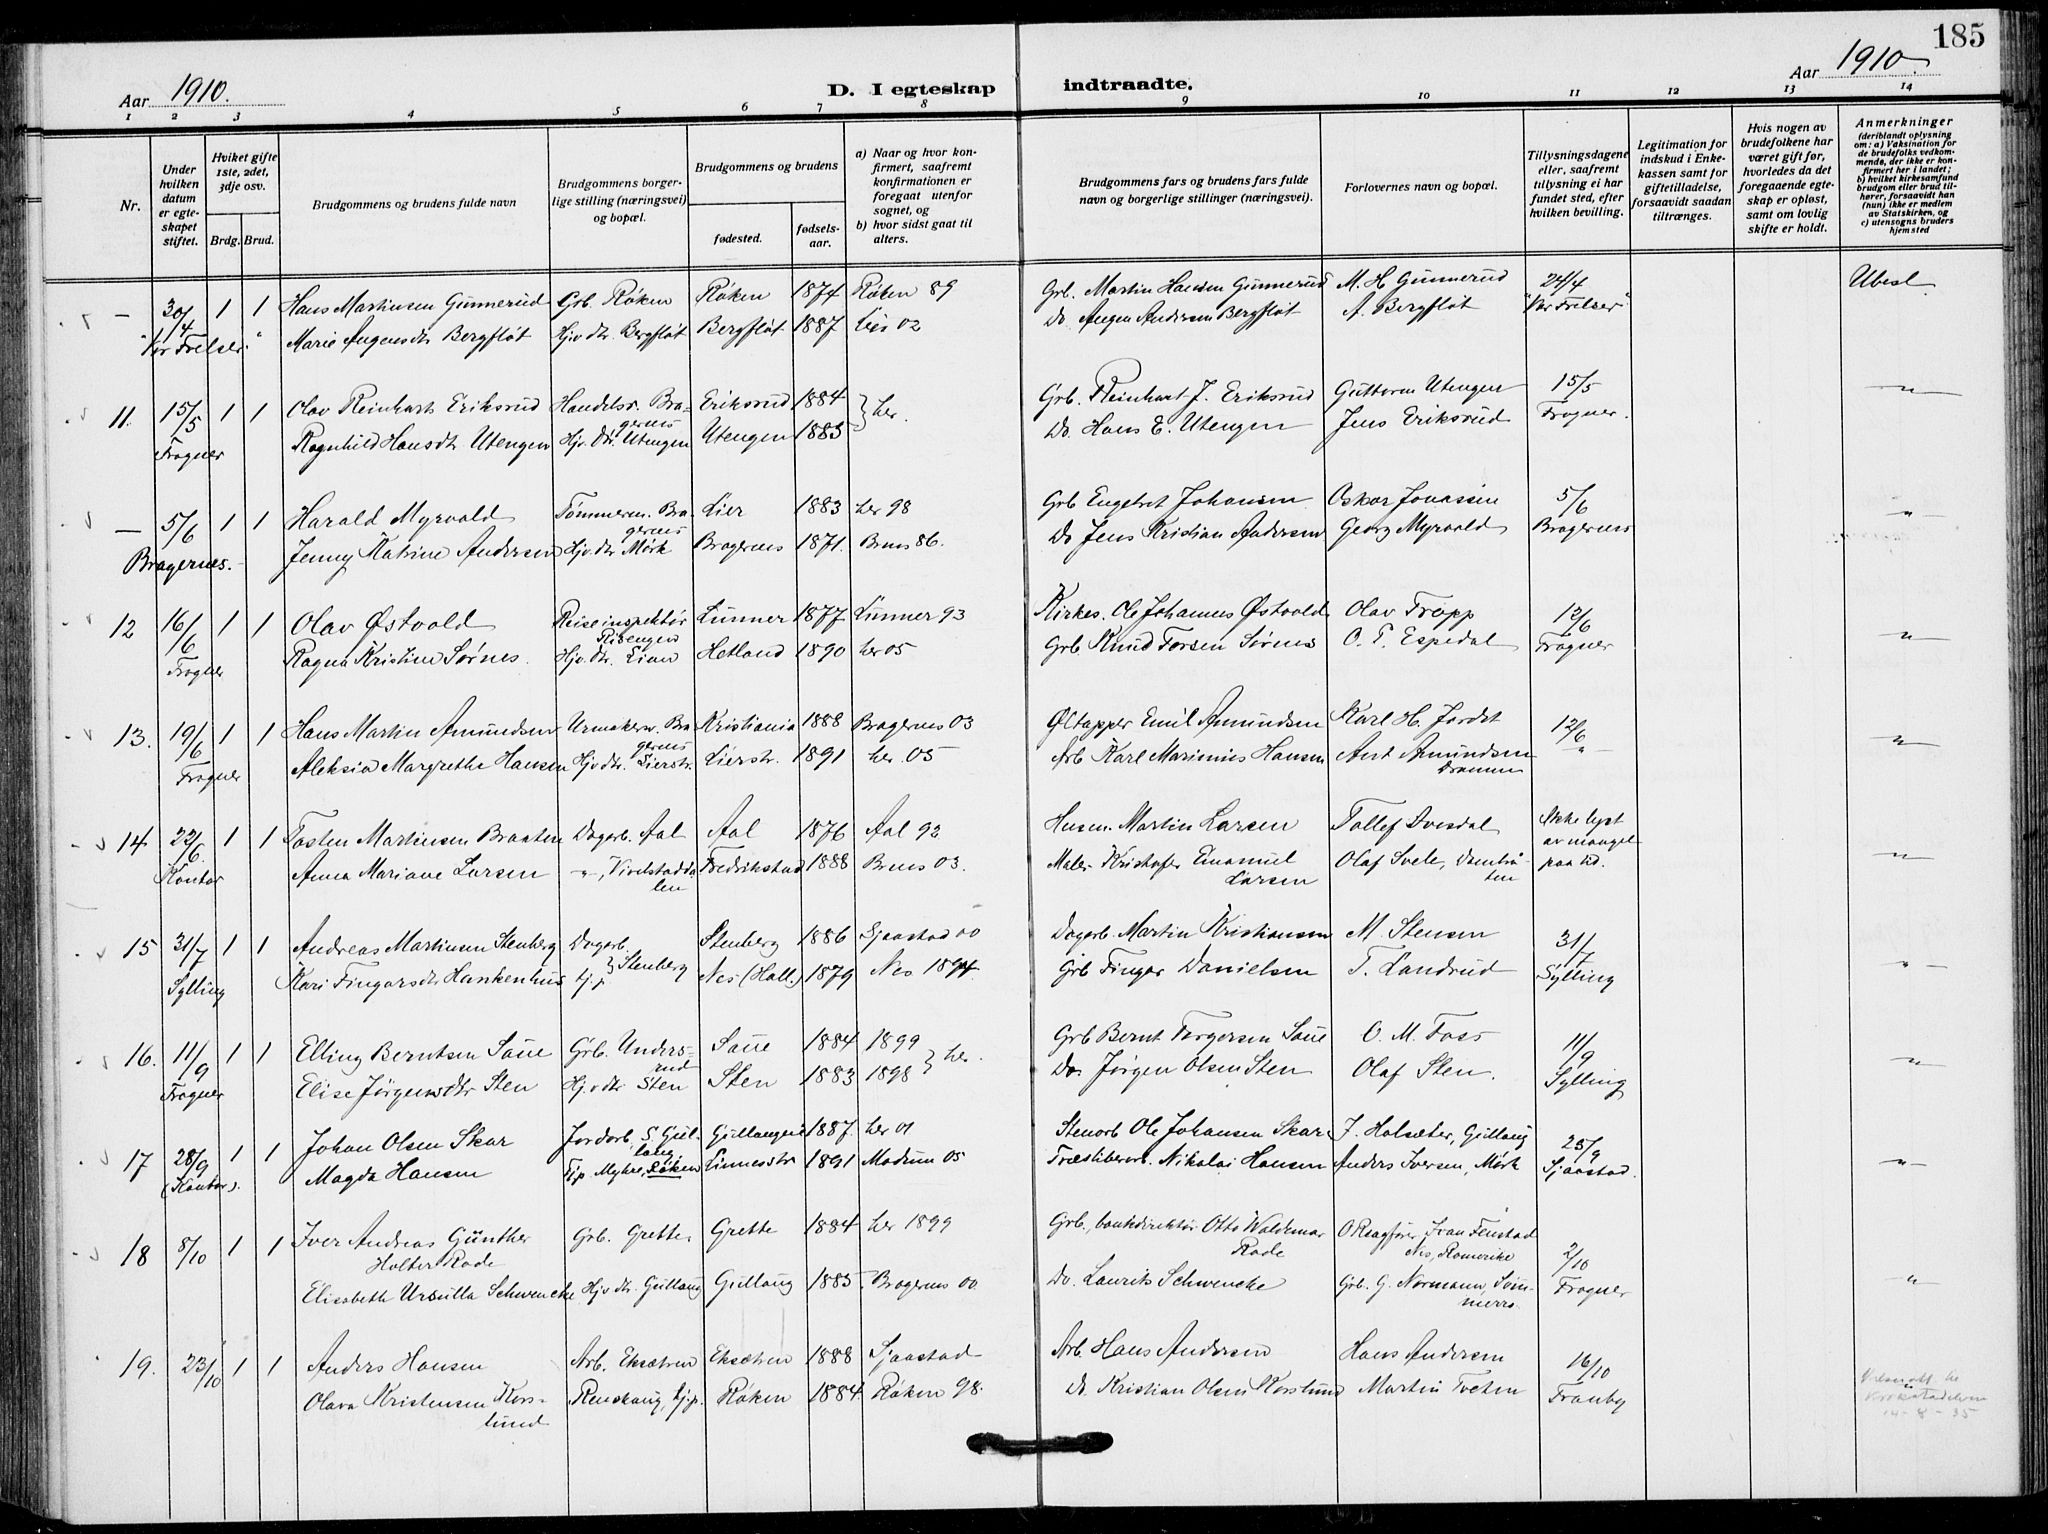 185
Aar 1910.
D. I egteskap indtraadte.
Aar 1910.
1 2 3 4 5 6 7 8 9 10 11 12 13 14
Nr.
Under hvilken datum er egteskapet stiftet.
Hviket gifte 1ste, 2det, 3dje osv.
Brdg. Brud.
Brudgommens og brudens fulde navn
Brudgommens borgerlige stilling (næringsvei) og bopæl.
Brudgommens og brudens
fødested.
fødselsaar.
a) Naar og hvor konfirmert, saafremt konfirmationen er foregaat utenfor sognet, og
b) hvor sidst gaat til alters.
Brudgommens fars og brudens fars fulde navn og borgerlige stillinger (næringsvei).
Forlovernes navn og bopæl.
Tillysningsdagene eller, saafremt tillysning ei har fundet sted, efter hvilken bevilling.
Legitimation for indskud i Enkekassen samt for giftetilladelse, forsaavidt saadan tiltrænges.
Hvis nogen av brudefolkene har været gift før, hvorledes da det foregaaende egteskap er opløst, samt om lovlig skifte er holdt.
Anmerkninger
(deriblandt oplysning om: a) Vaksination for de brudefolks vedkommende, der ikke er konfirmert her i landet; b) hvilket kirkesamfund brudgom eller brud tilhører, forsaavidt han (hun) ikke er medlem av Statskirken, og c) utensogns bruders hjemsted
— 30/4 1 1 Hans Martinsen Gunnerud Grb. Røken Røken 1874 Røken 89 Grb. Martin Hansen Gunnerud M. H. Gunnerud 24/4 Ubesl.
"Vor Frelser." Marie Augensdtr Bergfløt Hjv dtr. Bergfløt Bergfløt 1887 Lier 02 Do. Augen Andersen Bergfløt A. Bergfløt "Vor Frelser"
11. 15/5 1 1 Olav Reinharts Eriksrud Handelsr. Bragernes Eriksrud 1884 } her. Grb. Reinhart J. Eriksrud Guttorm Utengen 15/5 — " —
Frogner Ragnhild Hansdtr Utengen Hjv. dtr. Utengen Utengen 1885 Do. Hans E. Utengen Jens Eriksrud Frogner.
— 5/6 1 1 Harald Myrvold Tømmerm. Bragernes Lier 1883 her 98 Grb Engebret Johansen Oskar Jonassen 5/6 — " —
Bragernes. Jenny Katrine Andersen Hjv. dtr Mørk Bragernes 1871. Brnes 86. Do Jens Kristian Andersen Georg Myrvold Bragernes
12 16/6 1 1 Olav Østvold Reiseinspektør Lunner 1877 Lunner 93 Kirkes. Ole Johannes Østvold Olav Tropp 12/6 — " —
Frogner Ragna Kristine Sørnes. Hjv. dtr. Lian Hetland 1890 her 05 Grb Knud Torsen Sørnes O. T. Espedal Frogner
13. 19/6 1 1 Hans Martin Amundsen Urmakersv. Bragernes Kristiania 1888 Bragernes 03 Øltapper Emil Amundsen Karl H. Jordet 12/6 — " —
Frogner Aleksia Margrethe Hansen Hjv dtr. Lierstr. Lierstr. 1891 her 05 Arb Karl Marinius Hansen Ant Amundsen Drammen — " —
14 22/6. 1 1 Tosten Martinsen Braaten Dagarb. Aal Aal 1876 Aal 92 Husm. Martin Larsen Tollef Dvesdal Ikke lyst — " —
Kontor Anna Mariane Larsen — " —, Vivelstaddalen Fredrikstad 1888 Brnes 03. Maler Kristofer Emanuel Larsen Olaf Svele, av mangel paa tid.
15 31/7 1 1 Andreas Martinsen Stenberg Dagarb. } Stenberg Stenberg 1886 Sjaastad 00 Dagarb. Martin Kristiansen M. Stensen 31/7 — " —
Sylling Kari Fingarsdtr Hankenhus tj.p Nes (Hall.) 1879 Nes 1894. Grb Fingar Danielsen T. Landrud Sylling
16. 11/9 1 1 Elling Berntsen Saue Grb. Undersrud Saue 1884 1899 } her. Grb Bernt Torgersen Saue O. M. Foss 11/9 — " —
Frogner Elise Jørgensdtr Sten Hjv dtr Sten Sten 1883 1898 Do. Jørgen Olsen Sten Olaf Sten. Sylling
17 28/9 1 1 Johan Olsen Skar Jordarb. S. Gullaug Gullaugeie 1887. her 01 Stenarb Ole Johansen Skar J. Halsæter, Gullaug 25/9 — " —
(Kontor). Magda Hansen Tjp. Myhre, Røken Linnesstr 1891 Modum 05 Træsliberarb. Nikolai Hansen Anders Iversen, Mørk Sjaastad.
18 8/10 1 1 Iver Andreas Günther Holter Rode Grb. Grette. Grette 1884 her 1899 Grb., bankdirektør Otto Waldemar Rode O Rsagfører Ivar Fenstad Nes, Romerike 2/10 — " —
Elisabeth Ursulla Schwencke Hjv dtr. Gullaug Gullaug 1885. Bragernes 00. Do. Laurits Schwencke Grb. G. Normann, Frogner
19. 23/10 1 1 Anders Hansen Arb. Eksætren Eksætren 1888 Sjaastad Arb. Hans Andersen Hans Andersen 16/10
Olava Kristensen Korslund Renskaug, tj.p. Røken 1884 Røken 98. Do. Kristian Olsen Korslund Martin Tveten Tranby
14-8-35